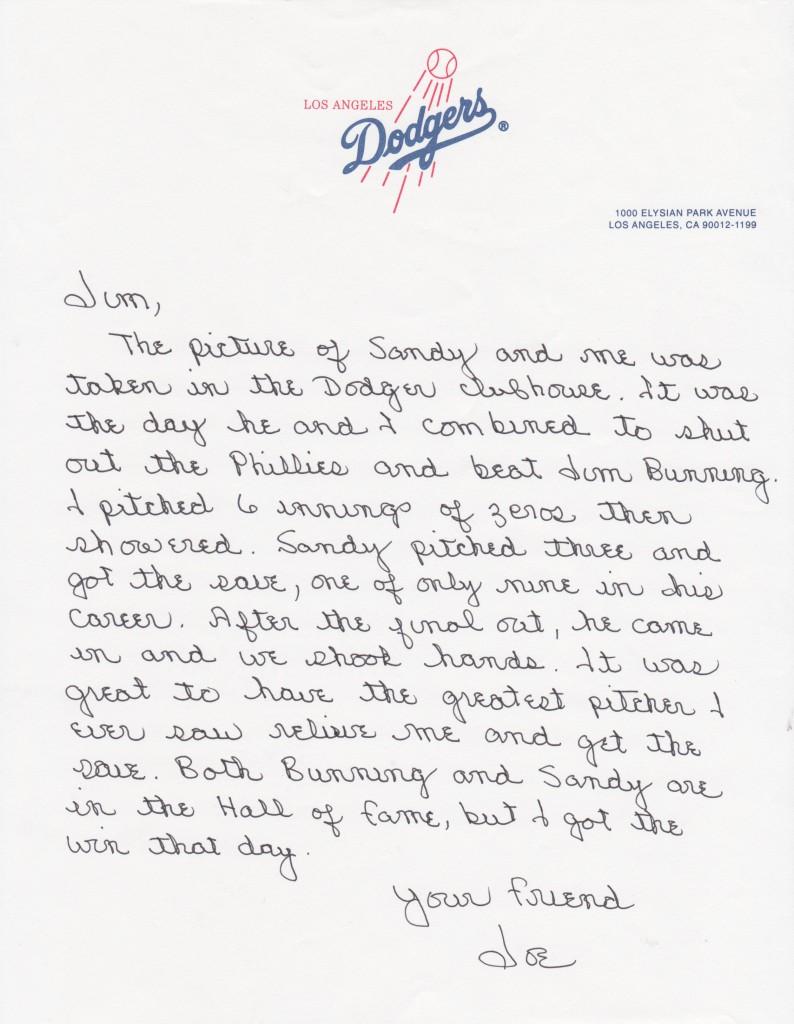 LOS ANGELES
Dodgers®
1000 ELYSIAN PARK AVENUE
LOS ANGELES, CA 90012-1199
Jim,
The picture of Sandy and me was
taken in the Dodger clubhouse. It was
the day he and I combined to shut
out the Phillies and beat Jim Bunning.
I pitched 6 innings of zeros then
showered. Sandy pitched three and
got the save, one of only nine in his
career. After the final out, he came
in and we shook hands. It was
great to have the greatest pitcher I
ever saw relieve me and get the
save. Both Bunning and Sandy are
in the Hall of Fame, but I got the
win that day.
Your friend
Joe